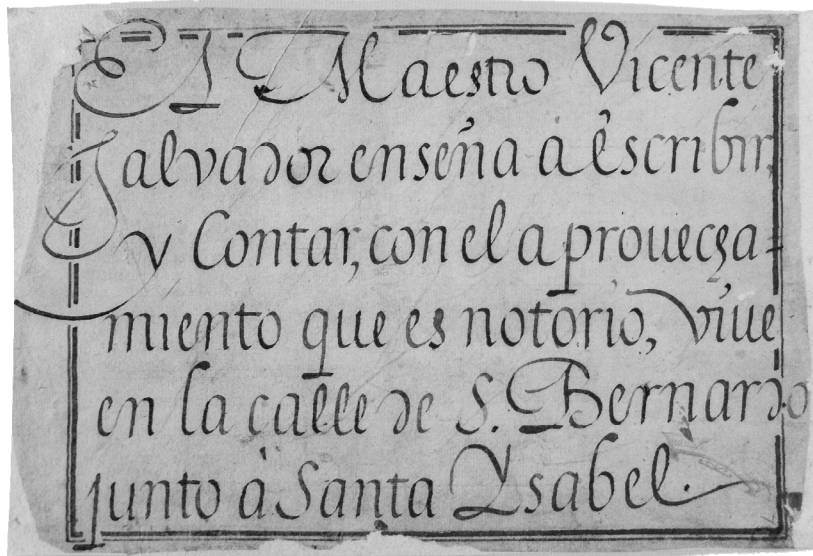 El Maestro Vicente
Salvador enseña à Escribir,
y Contar, con el aprouecha=
miento que es notorio, viue
en la calle de S. Bernardo
junto à Santa Ysabel.